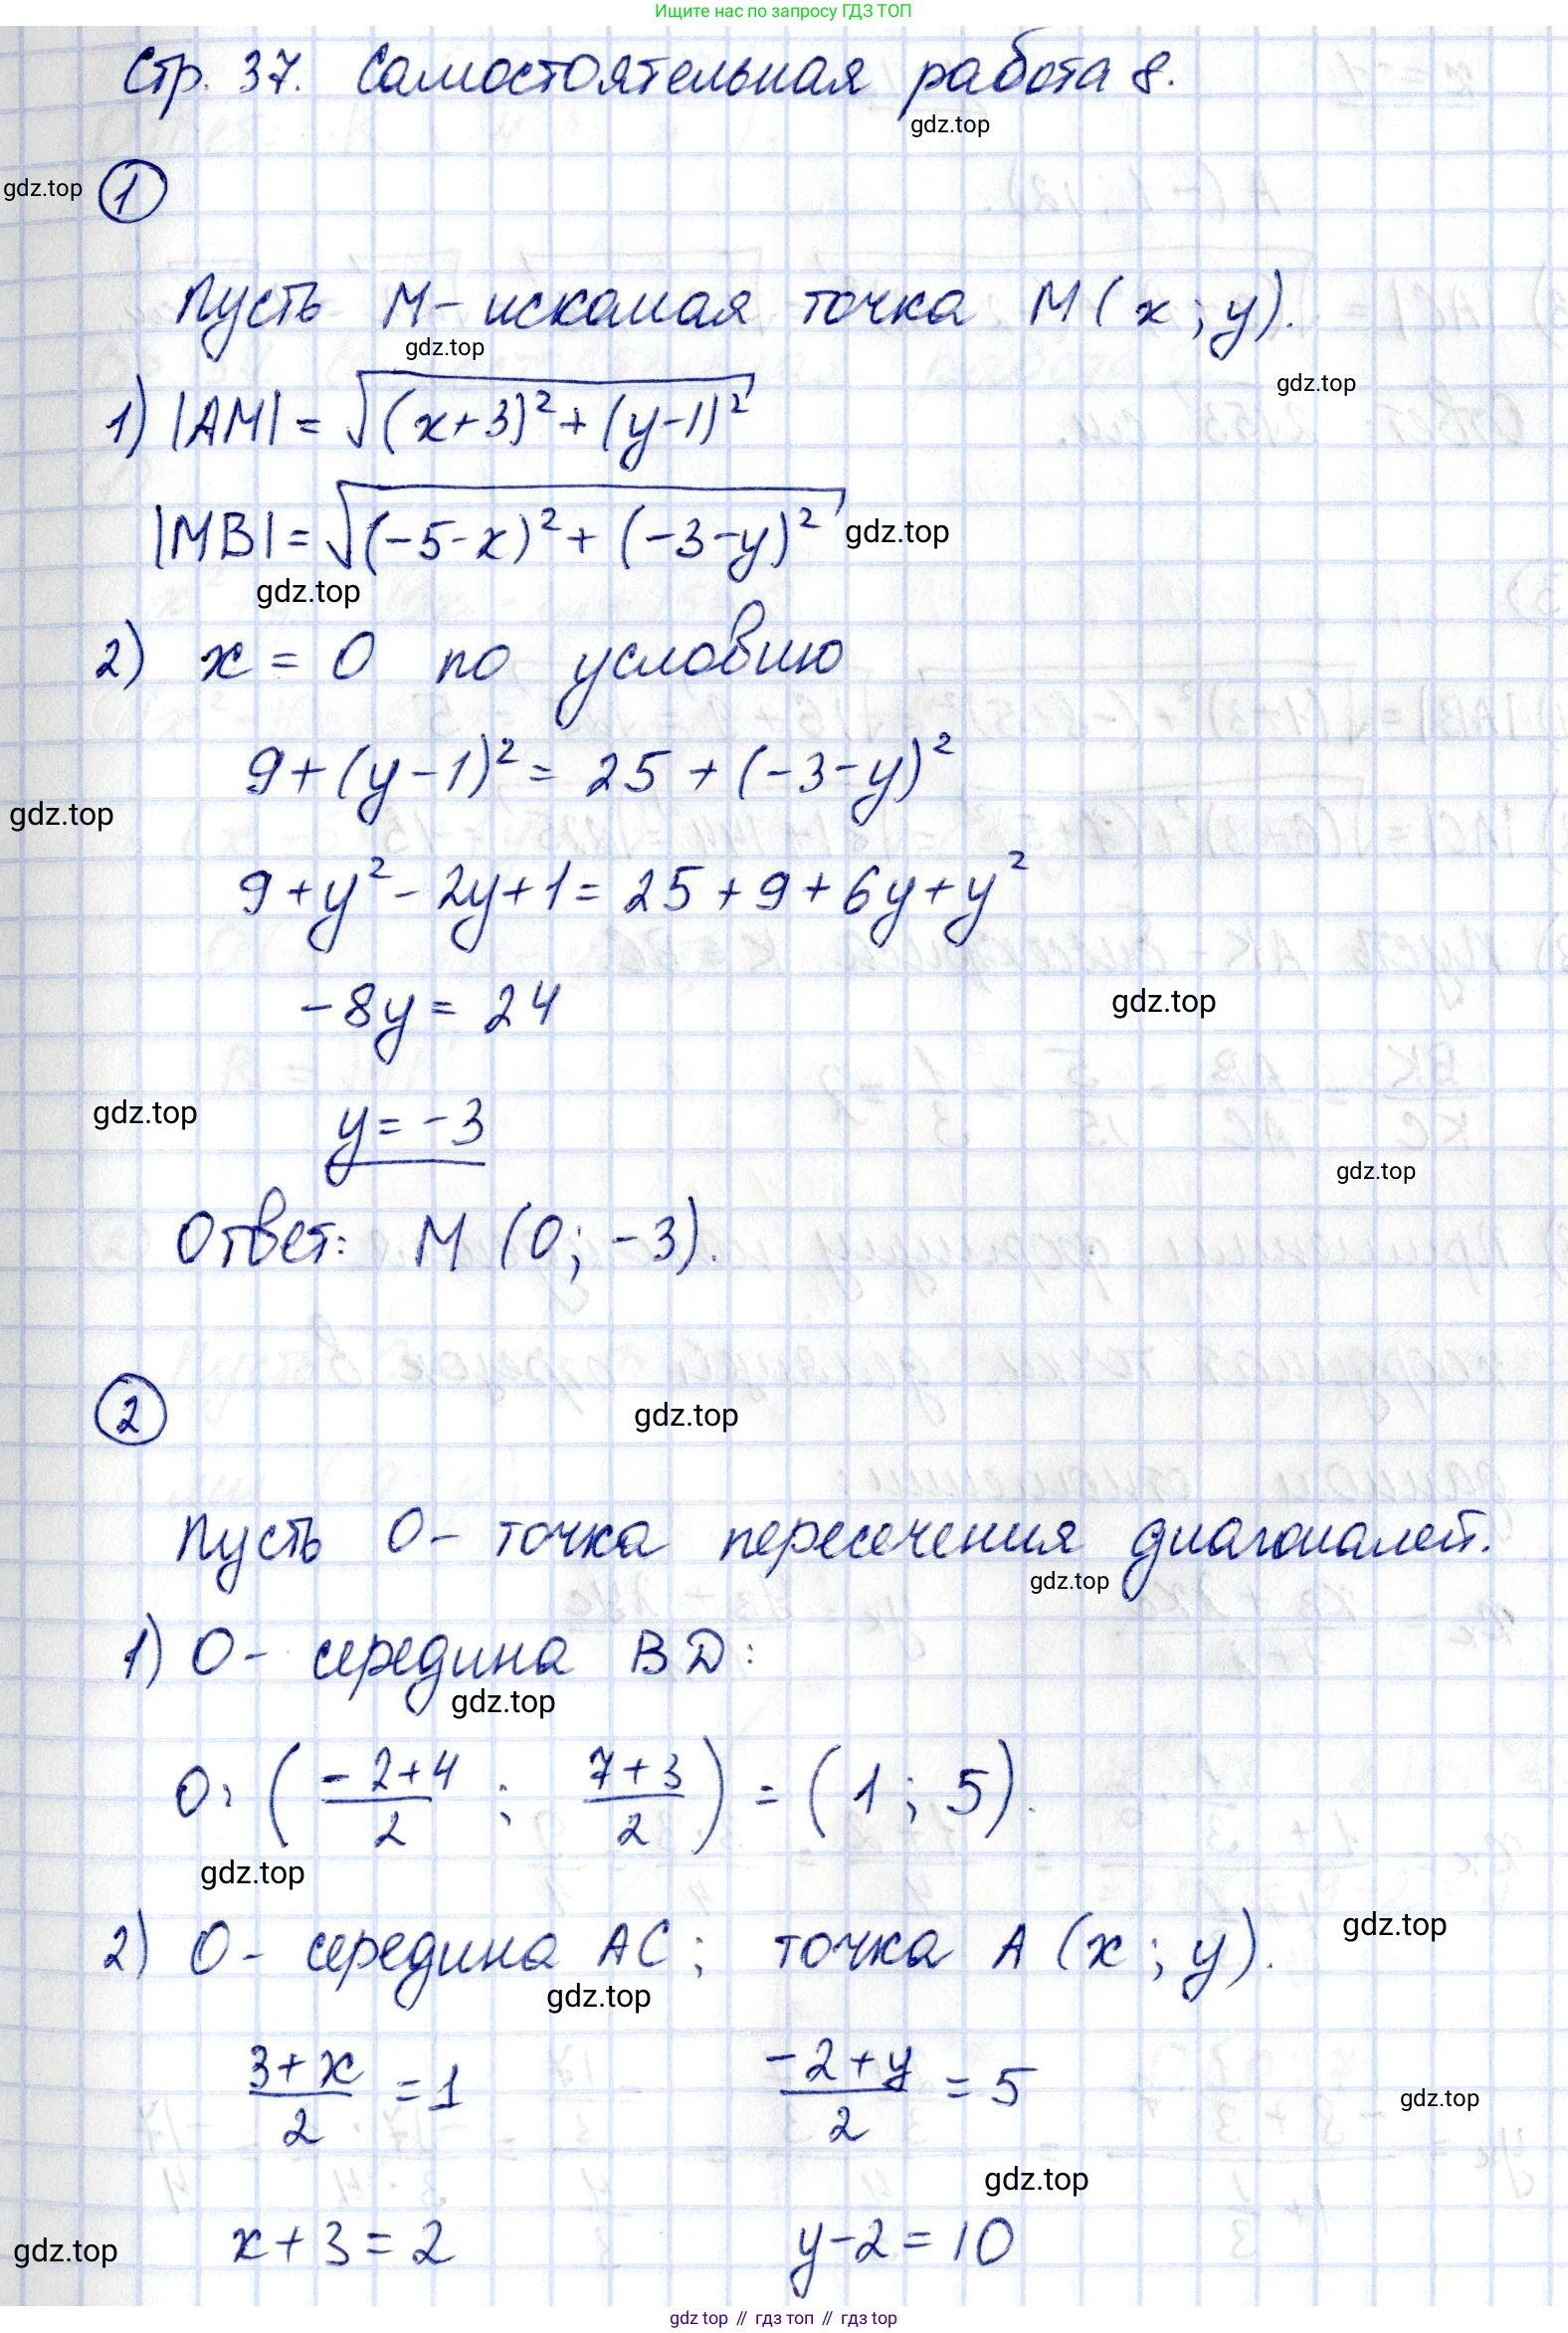 Ищите нас по запросу ГДЗ ТОП
Стр. 37. Самостоятельная работа 8.
gdz.top
gdz.top
1
Пусть М - искомая точка М(x; y).
gdz.top
gdz.top
1) |AM| = √((x+3)² + (y-1)²)
|MB| = √((-5-x)² + (-3-y)²)
gdz.top
gdz.top
2) x = 0 по условию
9 + (y-1)² = 25 + (-3-y)²
gdz.top
9 + y² - 2y + 1 = 25 + 9 + 6y + y²
-8y = 24
gdz.top
gdz.top
y = -3
gdz.top
Ответ: М (0; -3).
2
gdz.top
Пусть О - точка пересечения диагоналей.
gdz.top
1) О - середина BD:
gdz.top
O: ((-2+4)/2; (7+3)/2) = (1; 5).
gdz.top
gdz.top
2) О - середина AC; точка A (x; y).
gdz.top
(3+x)/2 = 1 (-2+y)/2 = 5
gdz.top
gdz.top
x+3 = 2 y-2 = 10
gdz.top
gdz top // гдз топ // гдз top